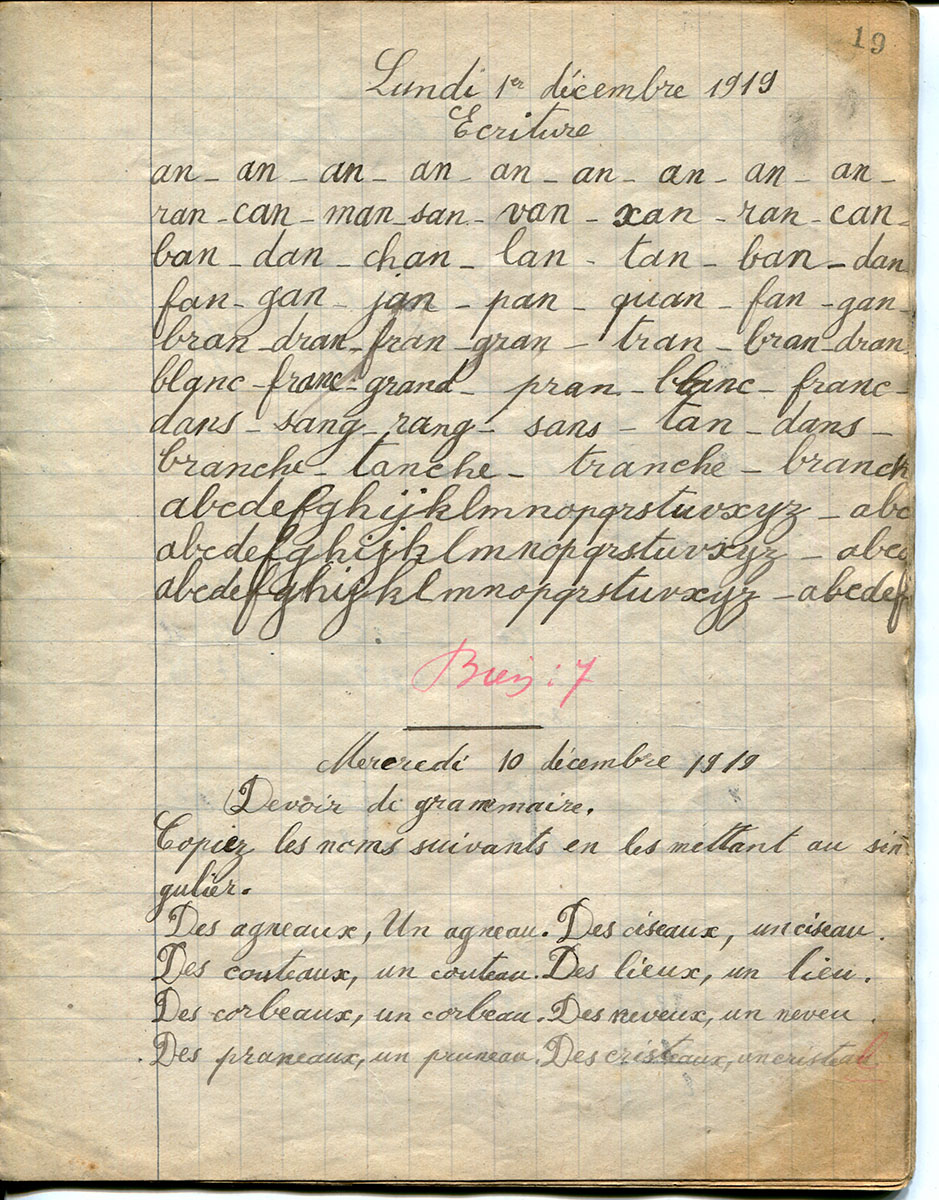 19
Lundi 1er décembre 1919
Ecriture
an _ an _ an _ an _ an _ an _ an _ an _ an _
ran _ can _ man _ san _ van _ xan _ ran _ can _
ban _ dan _ chan _ lan _ tan _ ban _ dan
fan _ gan _ jan _ pan _ quan _ fan _ gan _
bran _ dran _ fran _ gran _ tran _ bran _ dran
blanc _ franc _ grand _ pran _ blanc _ franc _
dans _ sang _ rang _ sans _ tan _ dans _
branche _ tanche _ tranche _ branch
abcdefghijklmnopqrstuvxyz _ abc
abcdefghijklmnopqrstuvxyz _ abcd
abcdefghijklmnopqrstuvxyz _ abcdef
Bien : 7
Mercredi 10 décembre 1919
Devoir de grammaire.
Copiez les noms suivants en les mettant au sin
gulier.
Des agneaux, Un agneau. Des ciseaux, un ciseau.
Des couteaux, un couteau. Des lieux, un lieu.
Des corbeaux, un corbeau. Des neveux, un neveu.
Des praneaux, un pruneau. Des cristeaux, un cristeau